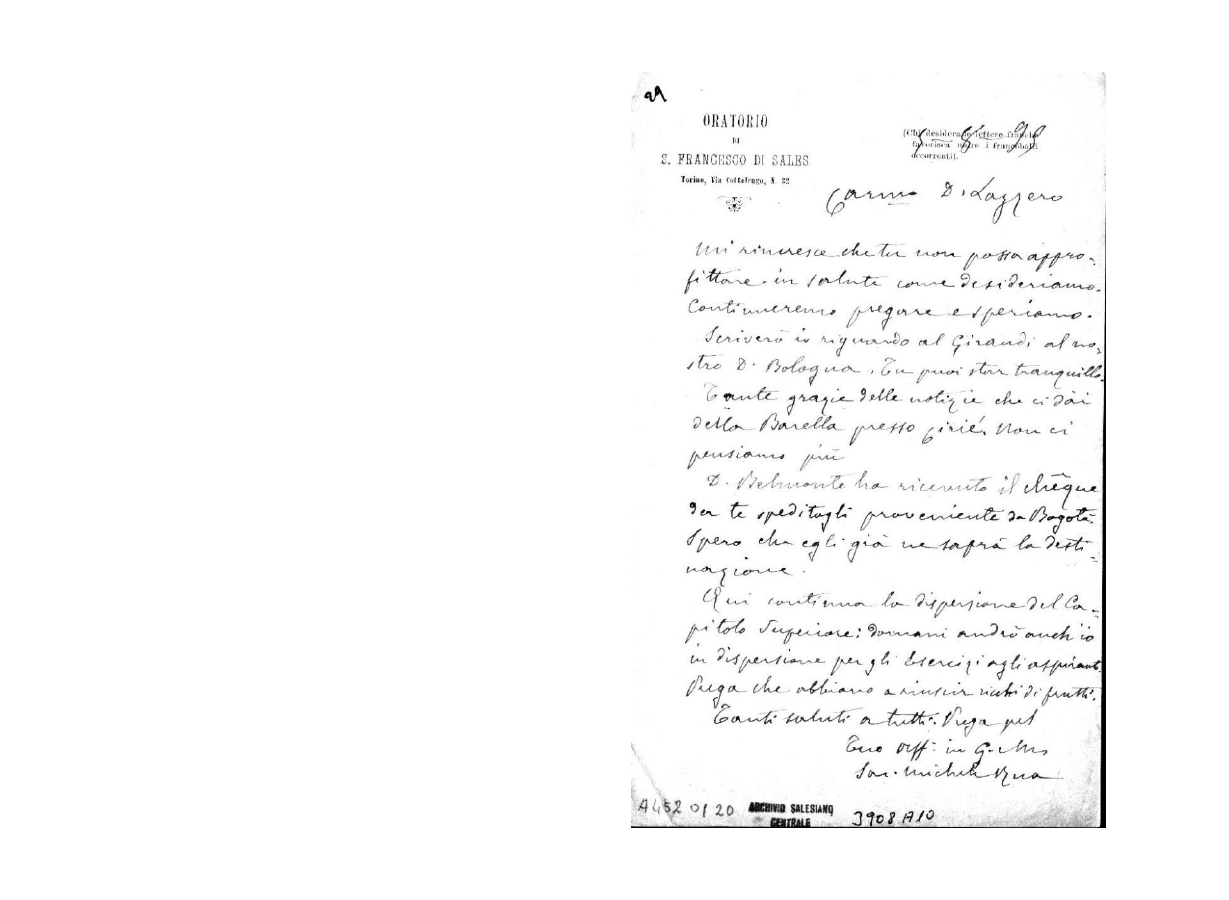 29
ORATORIO
DI
S. FRANCESCO DI SALES
Torino, Via Cottolengo, N. 32
(Chi desidera le lettere franche
favorisca unire i francobolli
occorrenti).
5 8 99
Carmo D. Lazzero
Mi rincresce che tu non possa appro-
fittare in salute come desideriamo.
Continueremo pregare e speriamo.
Scriverò io riguardo al Giraudi al no-
stro D. Bologna. Tu puoi star tranquillo.
Tante grazie delle notizie che ci dài
della Barella presso Cirié. Non ci
pensiamo più
D. Belmonte ha ricevuto il chèque
da te speditogli proveniente da Bogotà.
Spero che egli già ne saprà la desti-
nazione.
Qui continua la dispersione del Ca-
pitolo Superiore: domani andrò anch'io
in dispersione per gli Esercizi agli aspiranti.
Prega che abbiano a riuscir ricchi di frutti.
Tanti saluti a tutti. Prega pel
Tuo aff. in G. e M.
Sac. Michele Rua
A452 01 20
ARCHIVIO SALESIANO
CENTRALE
3908 A10